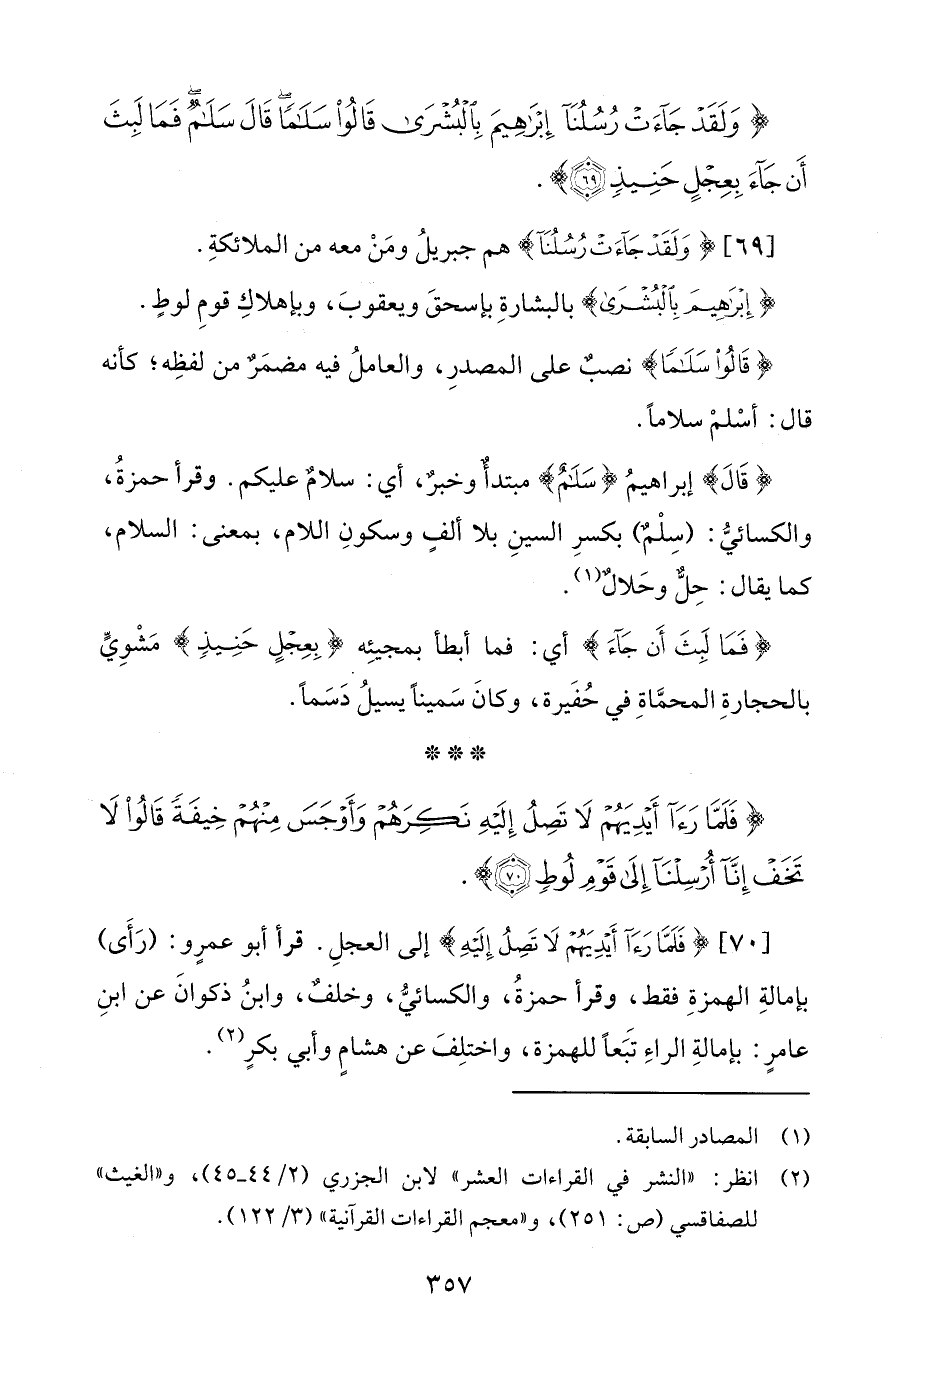 ﴿ وَلَقَدْ جَآءَتْ رُسُلُنَآ إِبْرَٰهِيمَ بِٱلْبُشْرَىٰ قَالُواْ سَلَٰمًاۖ قَالَ سَلَٰمٌۖ فَمَا لَبِثَ
أَن جَآءَ بِعِجْلٍ حَنِيذٍ ٦٩ ﴾ .
[٦٩] ﴿ وَلَقَدْ جَآءَتْ رُسُلُنَآ ﴾ هم جبريلُ ومَنْ معه من الملائكةِ .
﴿ إِبْرَٰهِيمَ بِٱلْبُشْرَىٰ ﴾ بالبشارةِ بإسحقَ ويعقوبَ، وبإهلاكِ قومِ لوطٍ .
﴿ قَالُواْ سَلَٰمًا ﴾ نصبٌ على المصدرِ، والعاملُ فيه مضمَرٌ من لفظِه؛ كأنه
قال: أسْلمْ سلاماً .
﴿ قَالَ ﴾ إبراهيمُ ﴿ سَلَٰمٌ ﴾ مبتدأٌ وخبرٌ، أي: سلامٌ عليكم . وقرأ حمزةُ،
والكسائيُّ: (سِلْمٌ) بكسرِ السينِ بلا ألفٍ وسكونِ اللام، بمعنى: السلام،
كما يقال: حِلٌّ وحَلالٌ(١) .
﴿ فَمَا لَبِثَ أَن جَآءَ ﴾ أي: فما أبطأ بمجيئِه ﴿ بِعِجْلٍ حَنِيذٍ ﴾ مَشْوِيٍّ
بالحجارةِ المحمَّاةِ في حُفَيرة، وكانَ سَميناً يسيلُ دَسَماً .
* * *
﴿ فَلَمَّا رَءَآ أَيْدِيَهُمْ لَا تَصِلُ إِلَيْهِ نَكِرَهُمْ وَأَوْجَسَ مِنْهُمْ خِيفَةً قَالُواْ لَا
تَخَفْ إِنَّآ أُرْسِلْنَآ إِلَىٰ قَوْمِ لُوطٍ ٧٠ ﴾ .
[٧٠] ﴿ فَلَمَّا رَءَآ أَيْدِيَهُمْ لَا تَصِلُ إِلَيْهِ ﴾ إلى العجلِ . قرأ أبو عمرٍو: (رَأَى)
بإمالةِ الهمزةِ فقط، وقرأ حمزةُ، والكسائيُّ، وخلفٌ، وابنُ ذكوانَ عن ابنِ
عامرٍ: بإمالةِ الراءِ تبَعاً للهمزة، واختلِفَ عن هشامٍ وأبي بكرٍ(٢) .
(١) المصادر السابقة .
(٢) انظر: «النشر في القراءات العشر» لابن الجزري (٢/ ٤٤-٤٥)، و«الغيث»
للصفاقسي (ص: ٢٥١)، و«معجم القراءات القرآنية» (٣/ ١٢٢).
٣٥٧